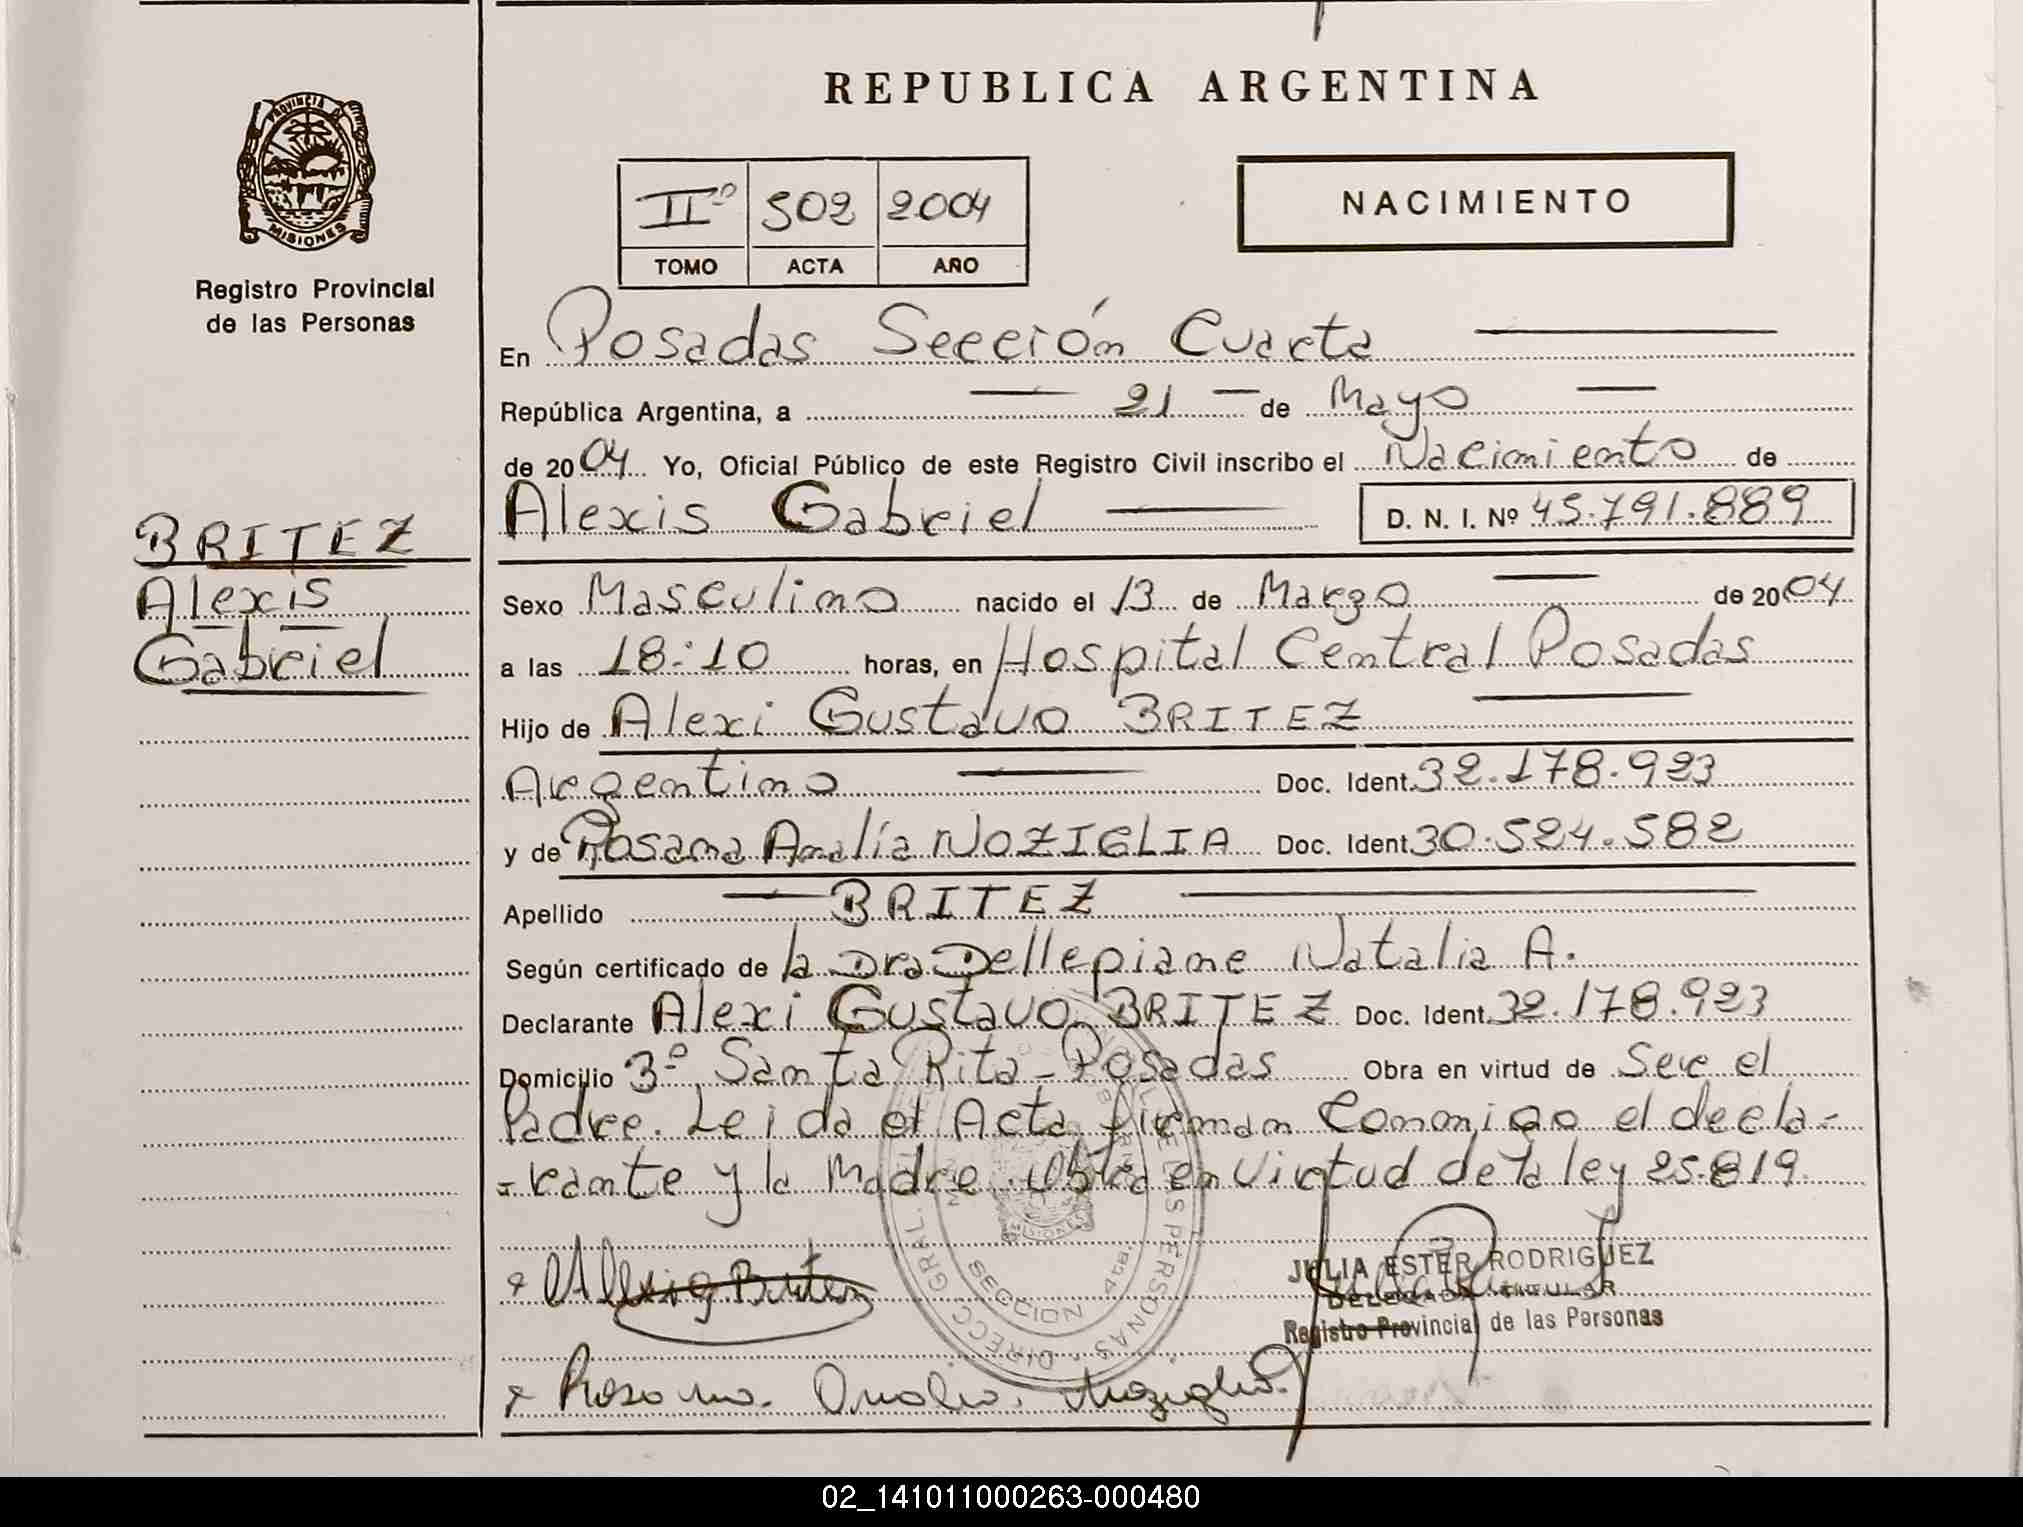 REPUBLICA ARGENTINA
PROVINCIA D
MISIONES
Registro Provincial
de las Personas
IIº 502 2004
TOMO ACTA AÑO
NACIMIENTO
En Posadas Sección Cuarta
República Argentina, a 21 de Mayo
de 2004 Yo, Oficial Público de este Registro Civil inscribo el Nacimiento de
Alexis Gabriel D. N. I. Nº 45.791.889
BRITEZ
Alexis
Gabriel
Sexo Masculino nacido el 13 de Marzo de 2004
a las 18:10 horas, en Hospital Central Posadas
Hijo de Alexi Gustavo BRITEZ
Argentino Doc. Ident. 32.178.923
y de Rosana Analía NOZIGLIA Doc. Ident. 30.524.582
Apellido BRITEZ
Según certificado de la Dra Dellepiane Natalia A.
Declarante Alexi Gustavo BRITEZ Doc. Ident. 32.178.923
Domicilio 3º Santa Rita - Posadas Obra en virtud de Ser el
Padre. Leida el Acta firman Conmigo el decla-
-rante y la Madre. Obra en Virtud de la ley 25.819.
DIRECC GRAL. DE LAS PERSONAS
SECCION 4ta.
MISIONES
JULIA ESTER RODRIGUEZ
DELEGADA TITULAR
Registro Provincial de las Personas
02_141011000263-000480